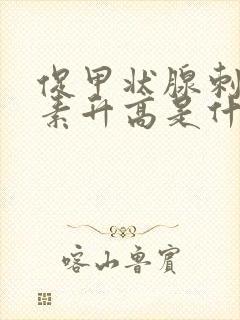 促甲状腺刺
素升高是什
喀山鲁宾